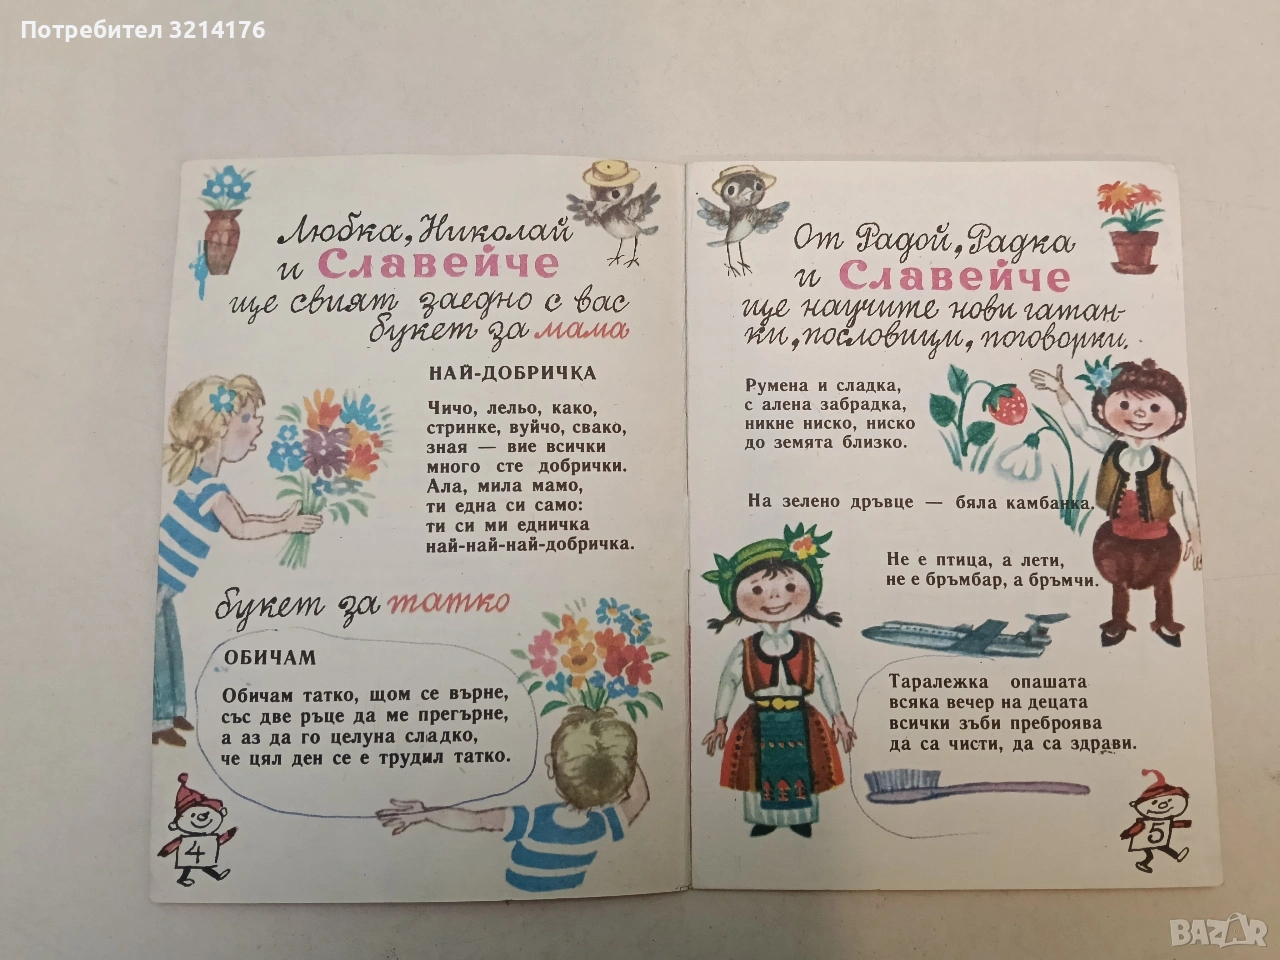 Потребител 3214176
Любка, Николай
и Славейче
ще свият заедно с вас
букет за мама
НАЙ-ДОБРИЧКА
Чичо, лельо, како,
стринке, вуйчо, свако,
зная — вие всички
много сте добрички.
Ала, мила мамо,
ти една си само:
ти си ми едничка
най-най-най-добричка.
букет за татко
ОБИЧАМ
Обичам татко, щом се върне,
със две ръце да ме прегърне,
а аз да го целуна сладко,
че цял ден се е трудил татко.
4
От Радой, Радка
и Славейче
ще научите нови гатан-
ки, пословици, поговорки.
Румена и сладка,
с алена забрадка,
никне ниско, ниско
до земята близко.
На зелено дръвце — бяла камбанка.
Не е птица, а лети,
не е бръмбар, а бръмчи.
Таралежка опашата
всяка вечер на децата
всички зъби преброява
да са чисти, да са здрави.
5
BAZAR